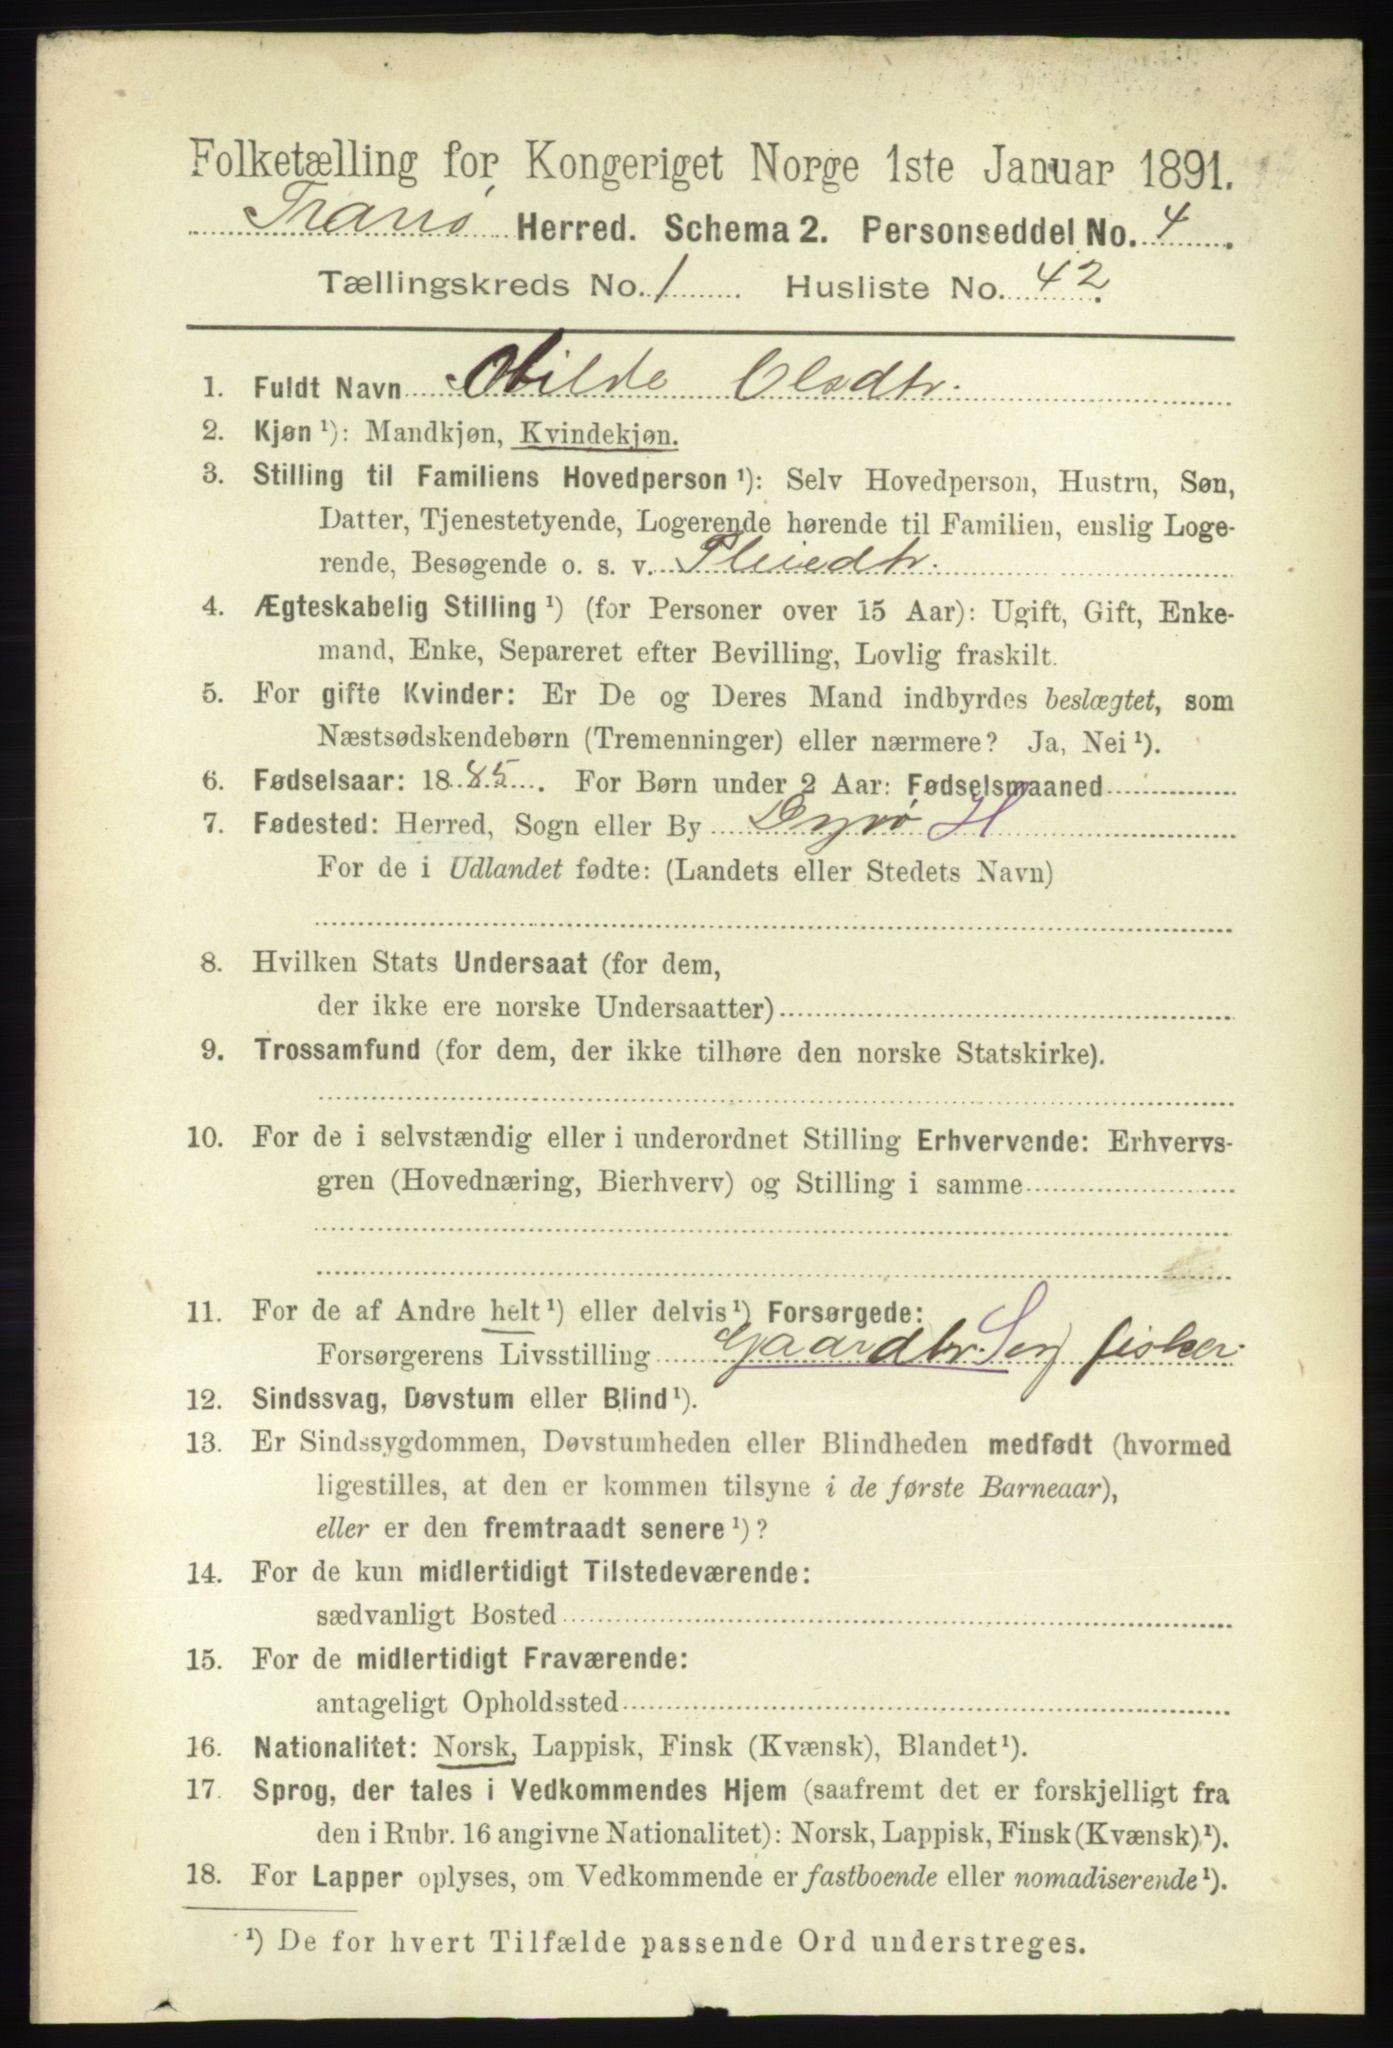 Folketælling for Kongeriget Norge 1ste Januar 1891.
Tranø Herred. Schema 2. Personseddel No. 4
Tællingskreds No. 1 Husliste No. 42.
1. Fuldt Navn Olsdtr.
2. Kjøn ¹): Mandkjøn, Kvindekjøn.
3. Stilling til Familiens Hovedperson ¹): Selv Hovedperson, Hustru, Søn,
Datter, Tjenestetyende, Logerende hørende til Familien, enslig Loge-
rende, Besøgende o. s. v. Pleiedtr.
4. Ægteskabelig Stilling ¹) (for Personer over 15 Aar): Ugift, Gift, Enke-
mand, Enke, Separeret efter Bevilling, Lovlig fraskilt.
5. For gifte Kvinder: Er De og Deres Mand indbyrdes beslægtet, som
Næstsødskendebørn (Tremenninger) eller nærmere? Ja, Nei ¹).
6. Fødselsaar: 1885. For Børn under 2 Aar: Fødselsmaaned
7. Fødested: Herred, Sogn eller By Dyrø H
For de i Udlandet fødte: (Landets eller Stedets Navn)
8. Hvilken Stats Undersaat (for dem,
der ikke ere norske Undersaatter)
9. Trossamfund (for dem, der ikke tilhøre den norske Statskirke).
10. For de i selvstændig eller i underordnet Stilling Erhvervende: Erhvervs-
gren (Hovednæring, Bierhverv) og Stilling i samme
11. For de af Andre helt ¹) eller delvis ¹) Forsørgede:
Forsørgerens Livsstilling Gaardbr. fisker
12. Sindssvag, Døvstum eller Blind ¹).
13. Er Sindssygdommen, Døvstumheden eller Blindheden medfødt (hvormed
ligestilles, at den er kommen tilsyne i de første Barneaar),
eller er den fremtraadt senere ¹)?
14. For de kun midlertidigt Tilstedeværende:
sædvanligt Bosted
15. For de midlertidigt Fraværende:
antageligt Opholdssted
16. Nationalitet: Norsk, Lappisk, Finsk (Kvænsk), Blandet ¹).
17. Sprog, der tales i Vedkommendes Hjem (saafremt det er forskjelligt fra
den i Rubr. 16 angivne Nationalitet): Norsk, Lappisk, Finsk (Kvænsk) ¹).
18. For Lapper oplyses, om Vedkommende er fastboende eller nomadiserende ¹).
¹) De for hvert Tilfælde passende Ord understreges.